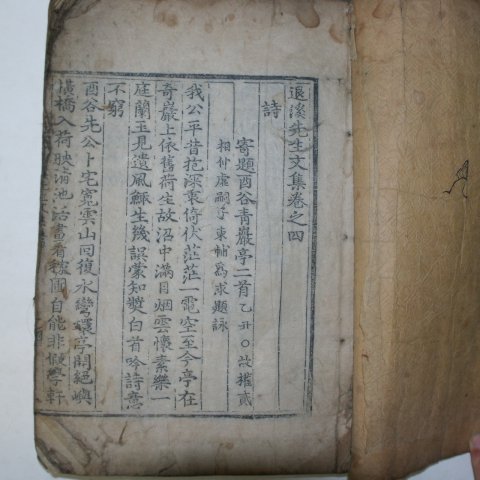 退溪先生文集卷之四
詩
寄題酉谷靑巖亭二首 乙丑○故權貳
相仲虛嗣子東輔爲求題詠
我公平昔抱深衷倚伏茫茫一電空至今亭在
奇巖上依舊荷生故沼中滿目烟雲懷素樂一
庭蘭玉見遺風鯫生幾誤蒙知奬白首吟詩意
不窮
酉谷先公卜宅寬雲山回復水彎環亭開絕嶼
橫橋入荷映淸池活畫看稼圃自能非假學軒